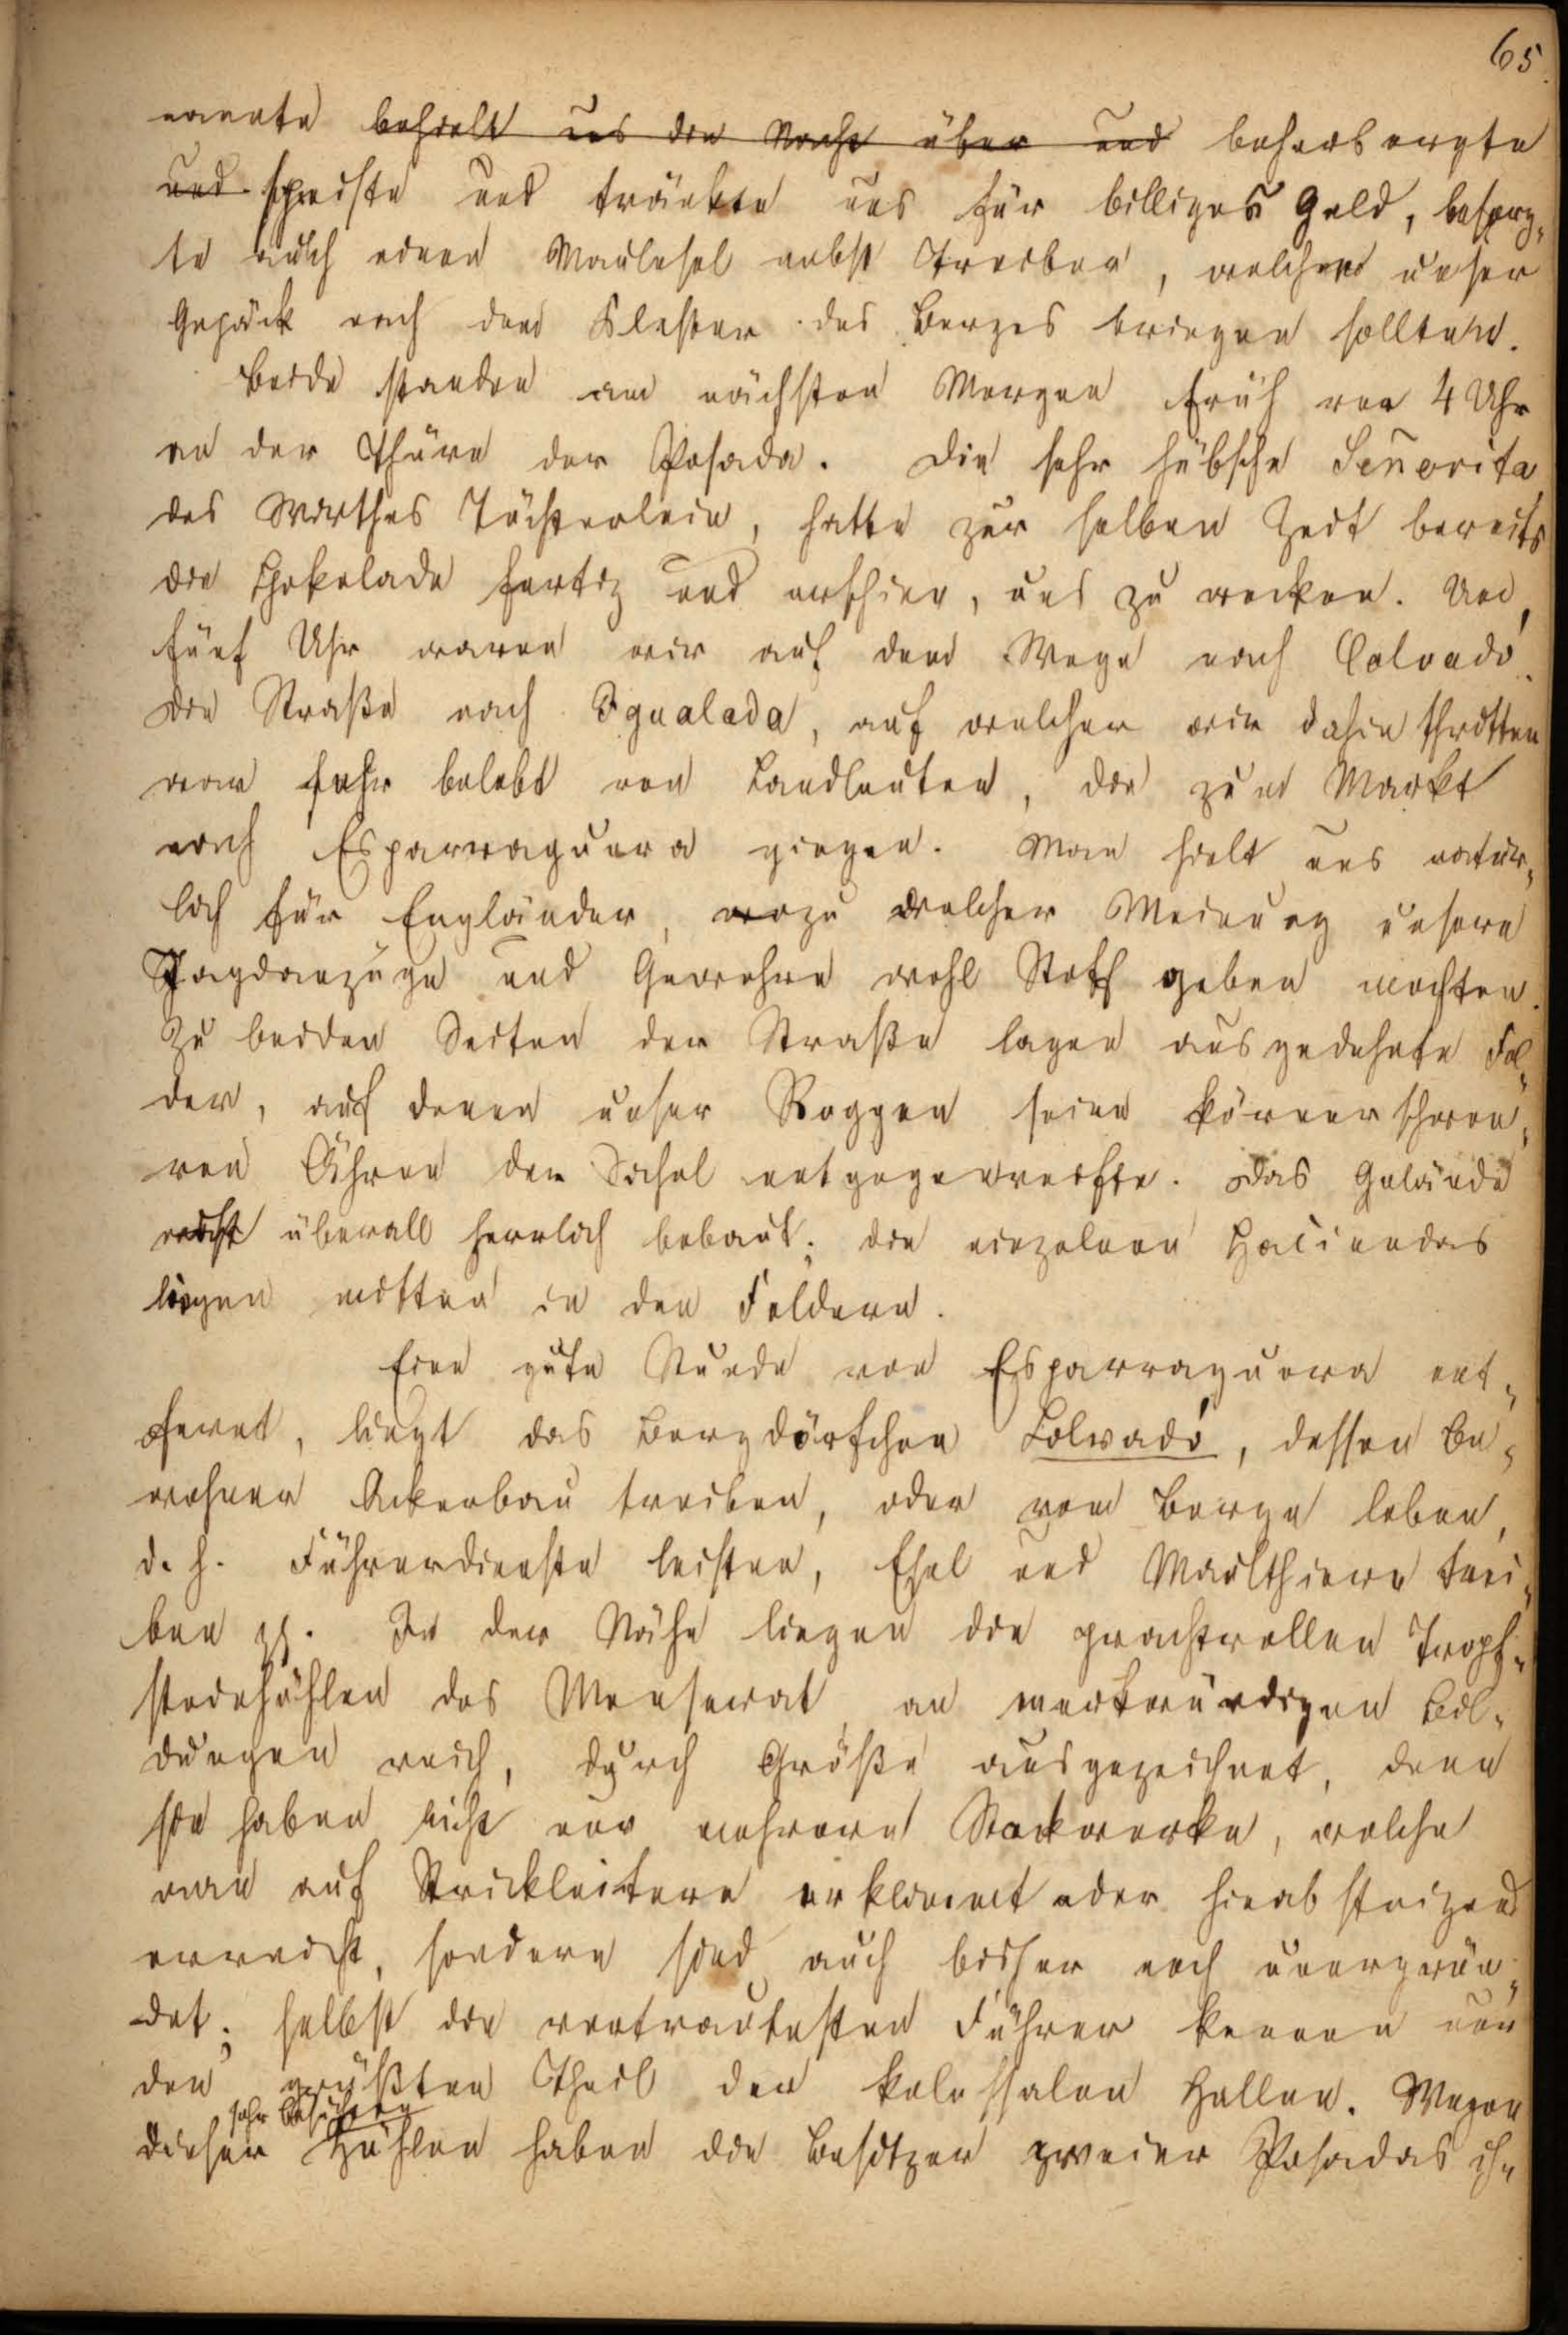 65.
nannte behielt uns die Nacht über und beherbergte
und speiste und tränkte uns für billiges Geld, besorg-
te auch einen Maulesel nebst Treiber, welche unser
Gepäck nach dem Kloster des Berges bringen sollten.
Beide standen am nächsten Morgen früh vor 4 Uhr
an der Thüre der Posada. Die sehr hübsche Señorita
des Wirthes Töchterlein, hatte zur selben Zeit bereits
die Chokolade fertig und erschien, uns zu wecken. Um
fünf Uhr waren wir auf dem Wege nach Colvadó.
Die Straße nach Igualada, auf welcher wir dahin schritten
war sehr belebt von Landleuten, die zum Markt
nach Esparraguera gingen. Man hielt uns natür-
lich für Engländer, wozu welcher Meinung unsere
Jagdanzüge und Gewehre wohl Stoff geben mochten.
Zu beiden Seiten der Straße lagen ausgedehnte Fel-
der, auf denen unser Roggen seine körnerschwe-
ren Ähren der Sichel entgegenreifte. Das Gelände
ist überall herrlich bebaut; die einzelnen Haciendas
liegen mitten in den Feldern.
Eine gute Stunde von Esparraguera ent-
fernt, liegt das Bergdörfchen Colvadó, dessen Be-
wohner Ackerbau treiben, oder vom Berge leben,
d. h. Führerdienste leisten, Esel und Maulthiere trei-
ben pp. In der Nähe liegen die prachtvollen Tropf-
steinhöhlen des Monserrat an merkwürdigen Bil-
dungen reich, durch Größe ausgezeichnet, denn
sie haben nicht nur mehrere Stockwerke, welche
man auf Strickleitern erklimmt oder hinabsteigend
erreicht, sondern sind auch bisher noch unergrün-
det; selbst die vertrautesten Führer kennen nur
den größten Theil der kolossalen Hallen. Wegen
sehr besuchten
dieser Höhlen haben die Besitzer zweier Posadas ihr